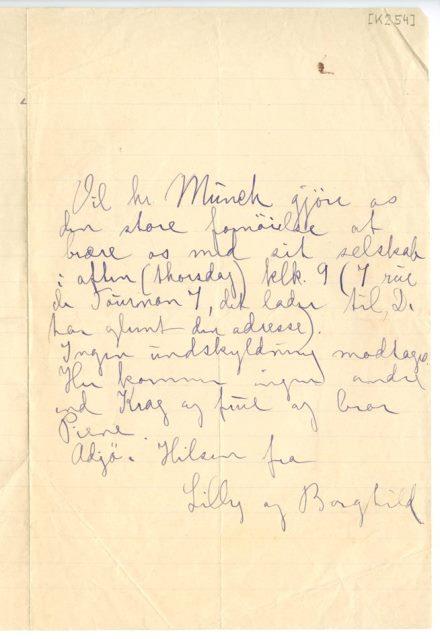 [K254]
Vil hr. Munch gjöre os
den store fornöielse at
beære os med sit selskab
i aften (thorsdag) klk. 9 (7 rue
de Tournon 7, det lader til, De
har glemt din adresse).
Ingen undskyldning modtages.
Her kommer ingen andre
end Krag og frue og bror
Pierre.
Adjö. Hilsen fra
Lilly og Borghild